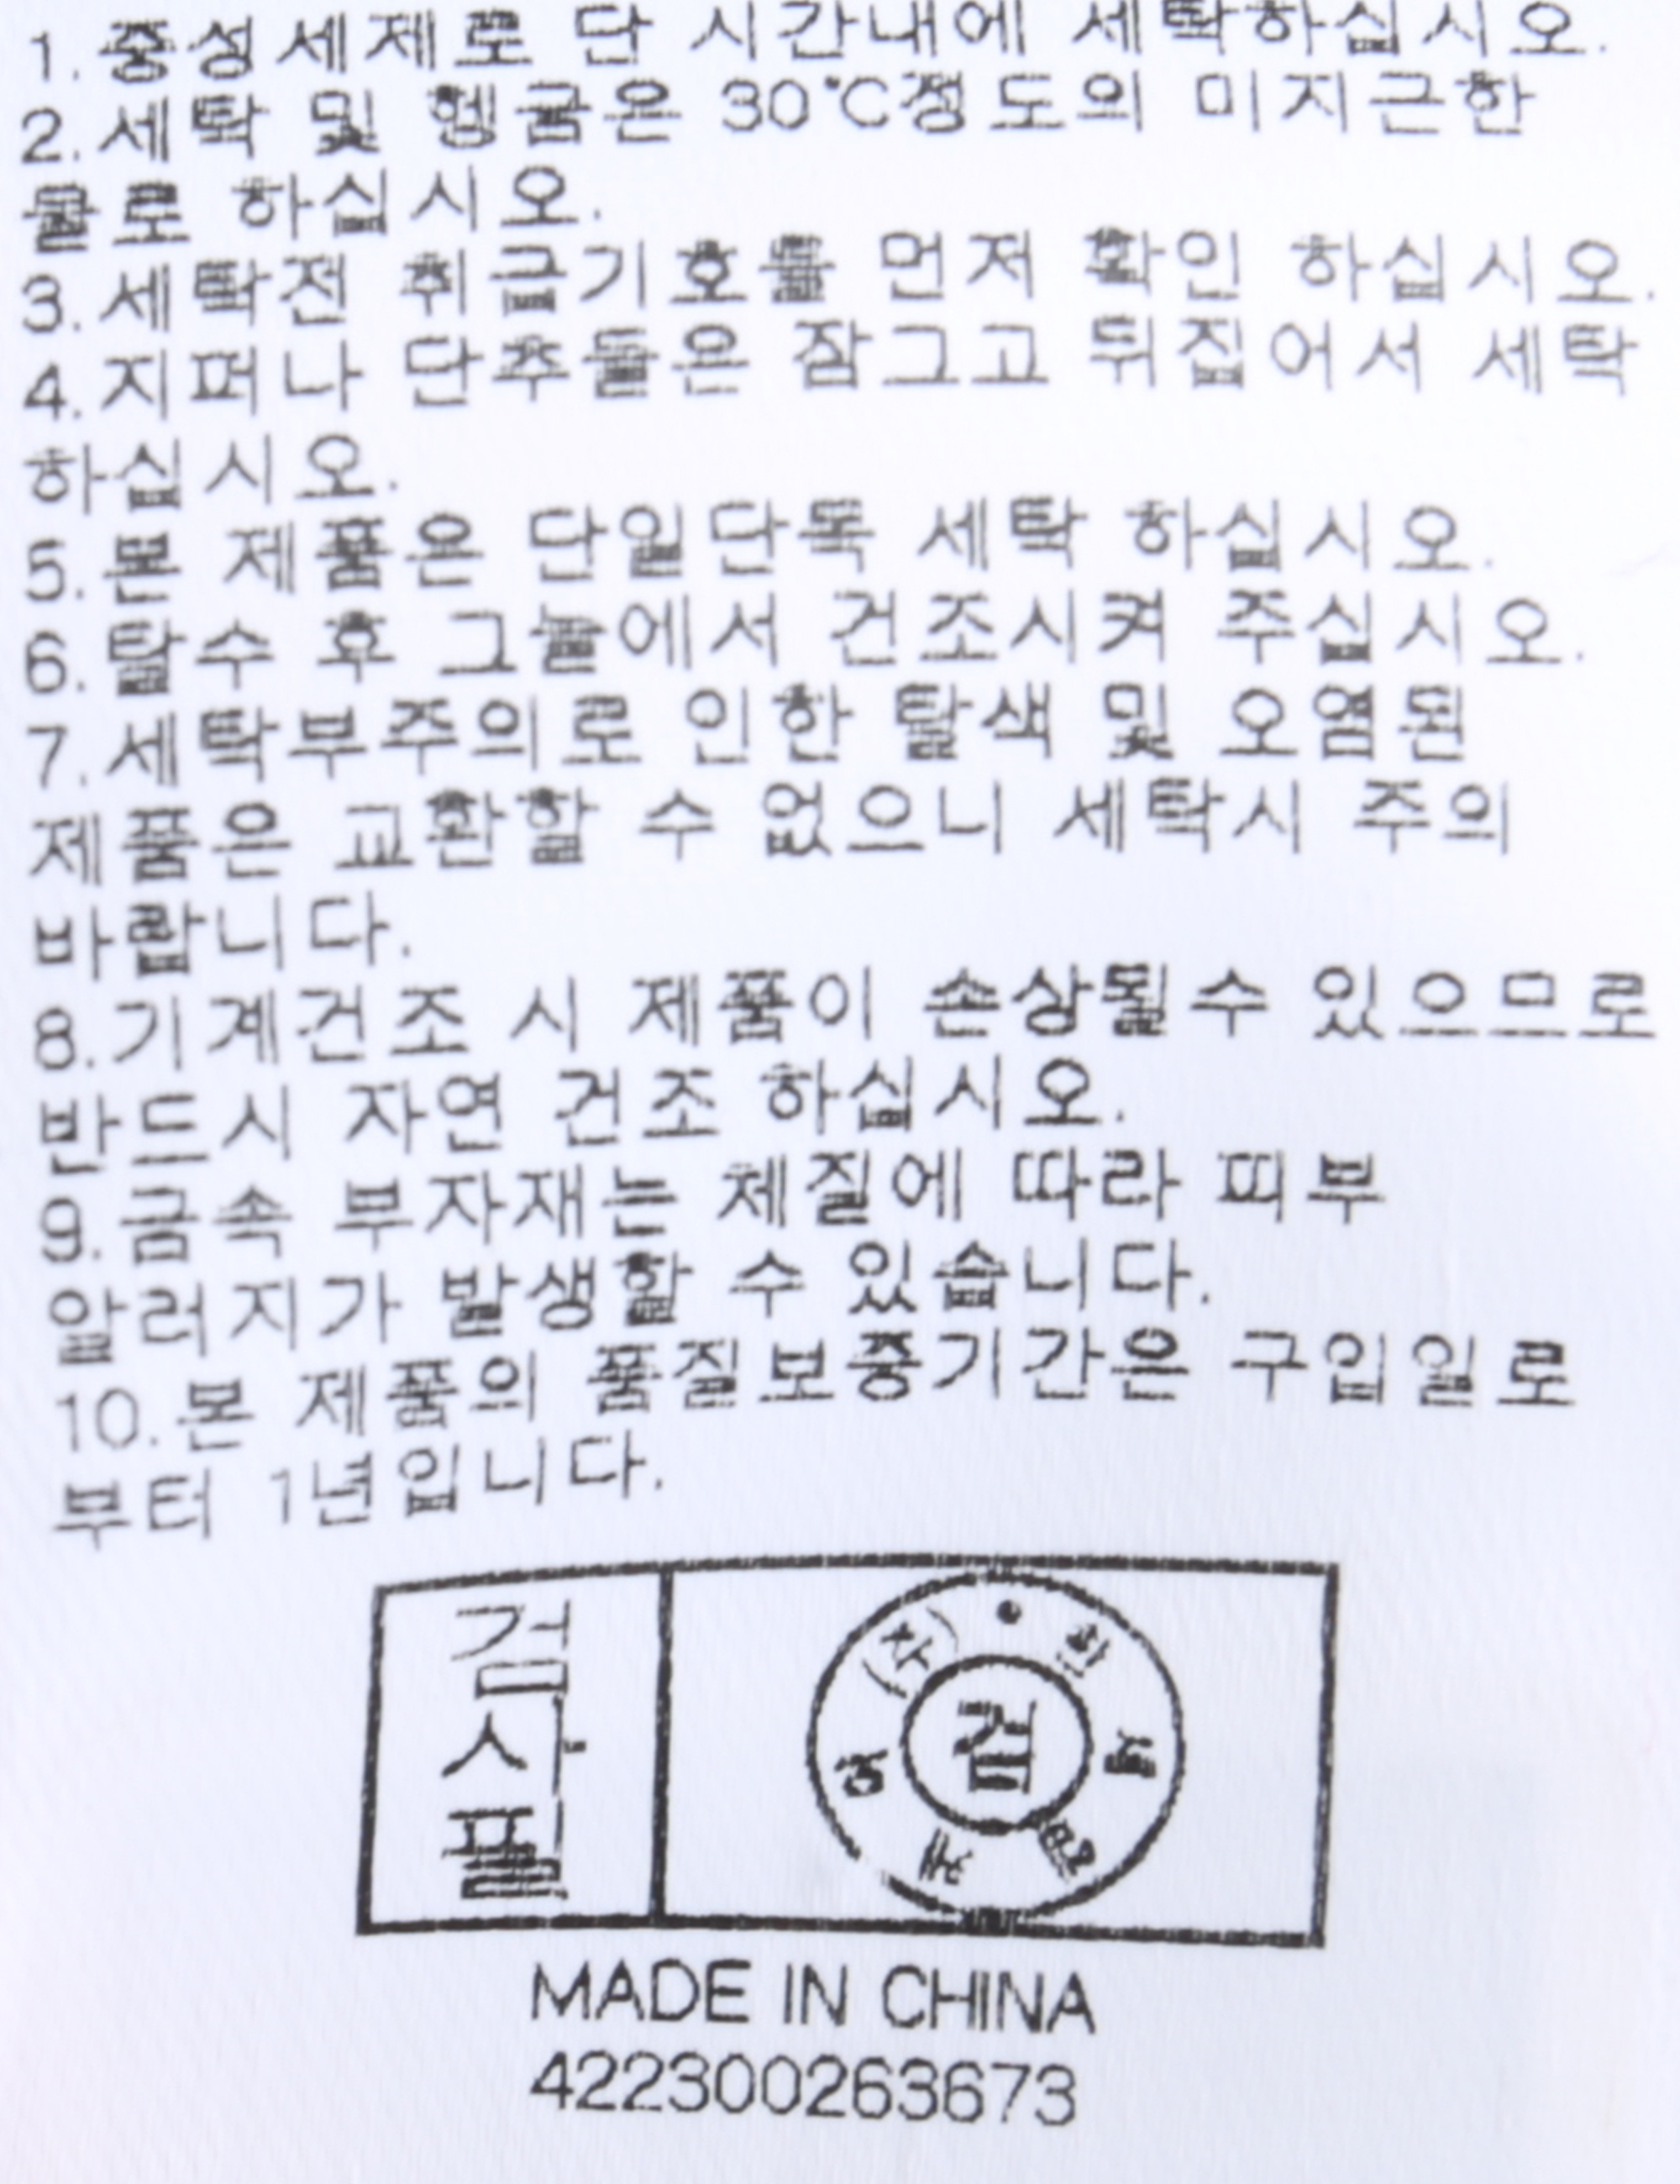 1.중성세제로 단 시간내에 세탁하십시오.
2.세탁 및 헹굼은 30℃정도의 미지근한
물로 하십시오.
3.세탁전 취급기호를 먼저 확인 하십시오.
4.지퍼나 단추들은 잠그고 뒤집어서 세탁
하십시오.
5.본 제품은 단일단독 세탁 하십시오.
6.탈수 후 그늘에서 건조시켜 주십시오.
7.세탁부주의로 인한 탈색 및 오염된
제품은 교환할 수 없으니 세탁시 주의
바랍니다.
8.기계건조 시 제품이 손상될수 있으므로
반드시 자연 건조 하십시오.
9.금속 부자재는 체질에 따라 피부
알러지가 발생할 수 있습니다.
10.본 제품의 품질보증기간은 구입일로
부터 1년입니다.
검사필
검
MADE IN CHINA
422300263673